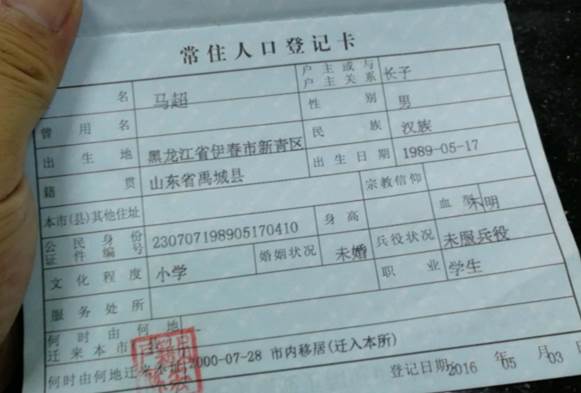 常住人口登记卡
名 马超 户主或与户主关系 长子
曾用名 性别 男
出生地 黑龙江省伊春市新青区 民族 汉族
籍贯 山东省禹城县 出生日期 1989-05-17
本市(县)其他住址 宗教信仰
公民身份证件编号 230707198905170410 身高 血型 不明
文化程度 小学 婚姻状况 未婚 兵役状况 未服兵役
服务处所 职业 学生
何时由何地迁来本市
何时由何地迁来本址 2000-07-28 市内移居(迁入本所)
登记日期:2016 年 05 月 03